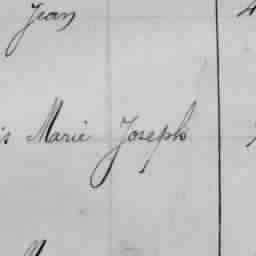 Jean
is Marie Joseph